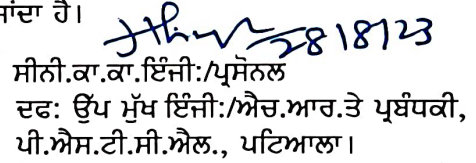 ਜਾਂਦਾ ਹੈ।
28/8/23
ਸੀਨੀ.ਕਾ.ਕਾ.ਇੰਜੀ:/ਪ੍ਰਸੋਨਲ
ਦਫ: ਉੱਪ ਮੁੱਖ ਇੰਜੀ:/ਐਚ.ਆਰ.ਤੇ ਪ੍ਰਬੰਧਕੀ,
ਪੀ.ਐਸ.ਟੀ.ਸੀ.ਐਲ., ਪਟਿਆਲਾ।